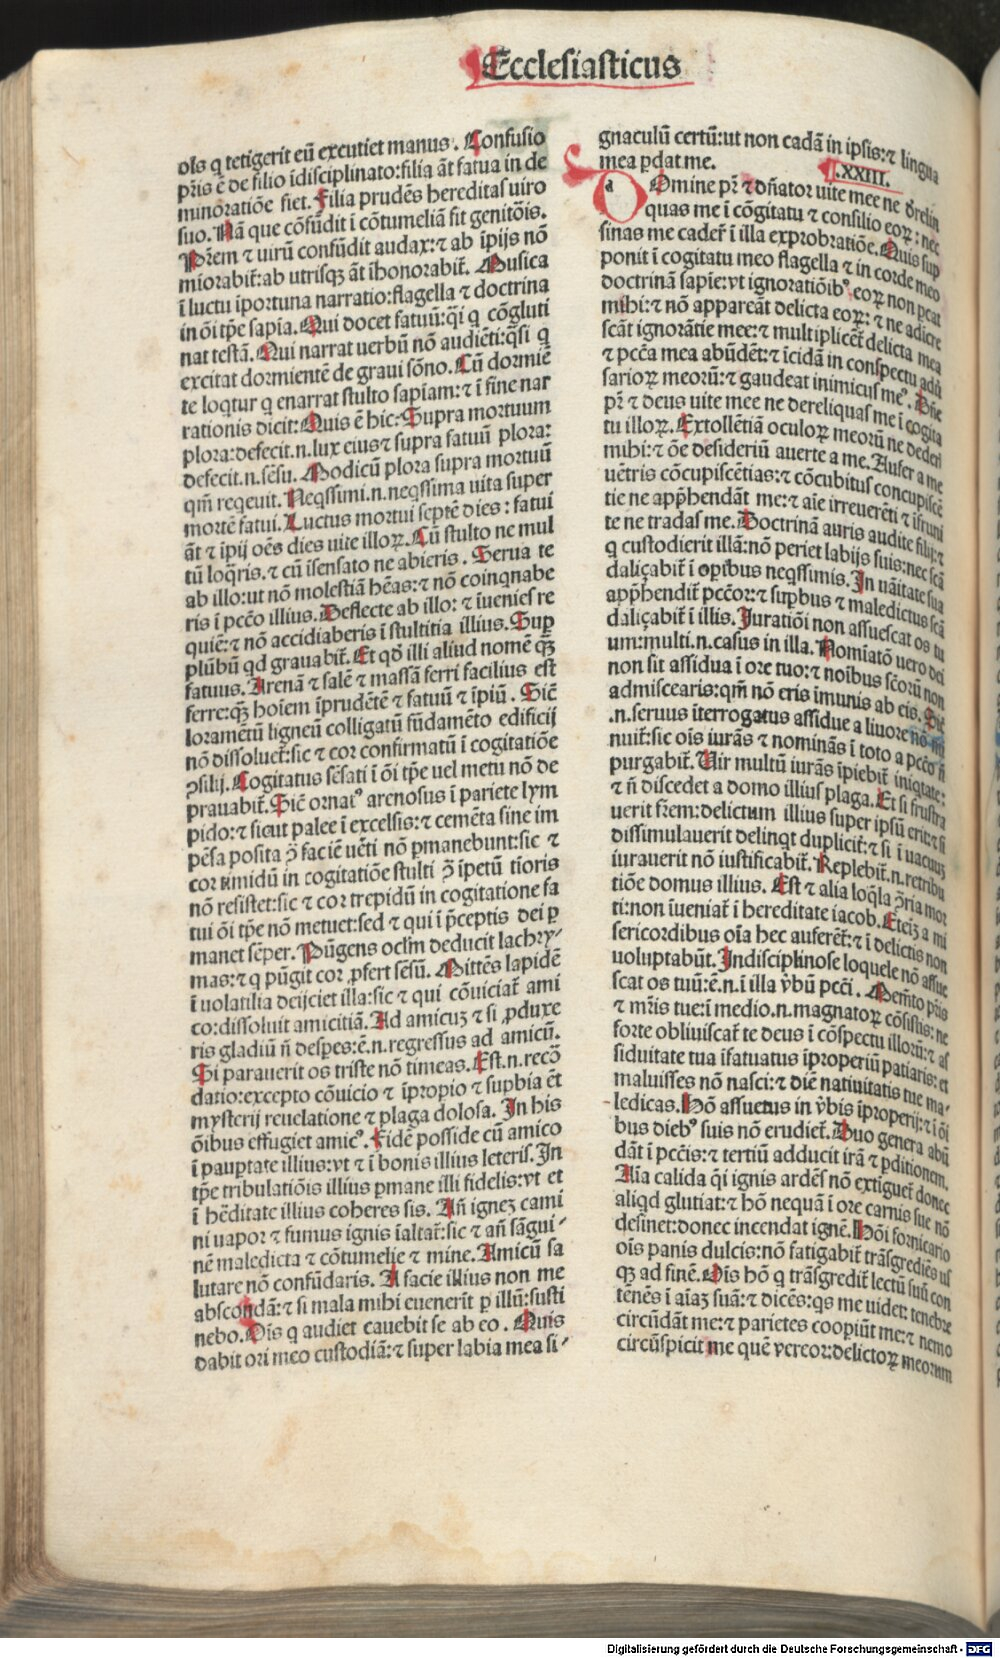 Ecclesiasticus
oīs q tetigerit eū excutiet manus. Confusio
pr̄is ē de filio īdisciplinato:filia āt fatua in de
minoratiōe fiet. Filia prudēs hereditas uiro
suo. Nā que cōfūdit ī cōtumeliā fit genitoīs.
Prēm ⁊ uirū confūdit audax:⁊ ab īpijs nō
miorabiť:ab utrisqꝫ āt īhonorabiť. Musica
ī luctu īportuna narratio:flagella ⁊ doctrina
in oī tp̄e sapīa. Qui docet fatuū:q̄ī q cōgluti
nat testā. Qui narrat uerbū nō audiēti:q̄si q
excitat dormientē de graui sōno. Cū dormiē
te loqtur q enarrat stulto sapīam:⁊ ī fine nar
rationis dicit:Quis ē hic: Supra mortuum
plora:defecit.n.lux eius⁊ supra fatuū plora:
defecit.n.sēsu. Modicū plora supra mortuū
qm̄ reqeuit. Neqssimi.n.neqssima uita super
mortē fatui. Luctus mortui septē dies: fatui
āt ⁊ īpij oēs dies uite illoꝝ. Cū stulto ne mul
tū loq̄ris.⁊ cū īsensato ne abieris. Serua te
ab illo:ut nō molestiā hēas:⁊ nō coinqnabe
ris ī pccō illius. Deflecte ab illo: ⁊ īuenies re
quiē:⁊ nō accidiaberis ī stultitia illius. Sup
plūbū qd grauabiť. Et qd̄ illi aliud nomē qꝫ̄
fatuus. Arenā ⁊ salē ⁊ massā ferri facilius est
ferre:qꝫ̄ hoīem īprudētē ⁊ fatuū ⁊ īpiū. Sic̄
loramētū ligneū colligatū fūdamēto edificij
nō dissolueť:sic ⁊ cor confirmatū ī cogitatiōe
ꝯsilij. Cogitatus sēsati ī oī tp̄e uel metu nō de
prauabiť. Sic̄ ornatꝰ arenosus ī pariete lym
pido:⁊ sicut palee ī excelsis:⁊ cemēta sine im
pēsa posita ꝯ̄ faciē uēti nō pmanebunt:sic ⁊
cor timidū in cogitatiōe stulti ꝯ̄ īpetū tioris
nō resistet:sic ⁊ cor trepidū in cogitatione fa
tui oī tp̄e nō metuet:sed ⁊ qui ī p̄ceptis dei p
manet sēper. Pūgens oclm̄ deducit lachry-
mas:⁊ q pūgit cor ꝓfert sēsū. Mittēs lapidē
ī uolatilia deijciet illa:sic ⁊ qui cōuiciať ami
co:dissoluit amicitiā. Ad amicuꝫ ⁊ si ꝓduxe
ris gladiū n̄ despes:ē.n.regressus ad amicū.
Si parauerit os triste nō timeas. Est.n.recō
datio:excepto cōuicio ⁊ īpropio ⁊ supbia ēt
mysterij reuelatione ⁊ plaga dolosa. In his
ōibus effugiet amicꝰ. Fidē posside cū amico
ī pauptate illius:vt ⁊ ī bonis illius leteris. In
tp̄e tribulatiōis illius pmane illi fidelis:vt et
ī hēditate illius coheres sis. An̄ ignez cami
ni uapor ⁊ fumus ignis īaltať:sic ⁊ an̄ sāgui-
nē maledicta ⁊ cōtumelie ⁊ mine. Amicū sa
lutare nō confūdaris. A facie illius non me
abscondā:⁊ si mala mihi euenerīt p illū:susti
nebo. Oīs q audiet cauebit se ab eo. Quis
dabit ori meo custodiā:⁊ super labia mea si-
gnaculū certū:ut non cadā in ipsis:⁊ lingua
mea pdat me. .XXIII.
DOmine pr̄ ⁊ dn̄ator uite mee ne d̄relin
quas me ī cōgitatu ⁊ consilio eoꝝ: nec
sinas me cadeř ī illa exprobratiōe. Quis sup
ponit ī cogitatu meo flagella ⁊ in corde meo
doctrinā sapīe:vt ignoratiōibꝰ eoꝝ non pcāt
mihi:⁊ nō appareāt delicta eoꝝ: ⁊ ne adicre
scāt ignorātie mee:⁊ multiplicēť delicta mea
⁊ pccā mea abūdēt:⁊ īcidā in conspectu adū
sarioꝝ meorū:⁊ gaudeat inimicus meꝰ. Dn̄e
pr̄ ⁊ deus uite mee ne derelīquas me ī cogita
tu illoꝝ. Extollētiā oculoꝝ meorū ne dederī
mihi:⁊ ōe desideriū auerte a me. Aufer a me
uētris cōcupiscētias:⁊ cōcubitus concupiscē
tie ne app̄hendāt me:⁊ aīe irreuerēti ⁊ īfruni
te ne tradas me. Doctrinā auris audite filij:⁊
q custodierit illā:nō periet labijs suis:nec scā
daliçabiť ī opībus neqssimis. In uāitate sua
app̄hendiť pccōr:⁊ supbus ⁊ maledictus scā
daliçabiť ī illis. Iuratiōi non assuescat os tu
um:multi.n.casus in illa. Nomīatō uero dei
non sit assidua ī ore tuo:⁊ noībus sc̄orū non
admiscearis:qm̄ nō eris īmunis ab eis. Sic̄
.n.seruus īterrogatus assidue a liuore nō mi
nuiť:sic oīs iurās ⁊ nominās ī toto a pccō n̄
purgabiť. Uir multū iurās īplebiť iniqtate:
⁊ n̄ discedet a domo illius plaga. Et si frustra
uerit fr̄em:delictum illius super ipsū erit:⁊ si
dissimulauerit delinqt dupliciť:⁊ si ī uacuuꝫ
iurauerit nō iustificabiť. Replebiť.n.retribu
tiōe domus illius. Est ⁊ alia loqla ꝯ̄ria mor
ti:non īueniať ī hereditate iacob. Eteīꝫ a mi
sericordibus oīa hec auferēť:⁊ ī delictis non
uoluptabūt. Indisciplinose loquele nō assue
scat os tuū:ē.n.ī illa v̄bū pccī. Mem̄to pr̄is
⁊ mr̄is tue:ī medio.n.magnatoꝝ cōsistis: ne
forte obliuiscať te deus ī cōspectu illorū:⁊ as
siduitate tua īfatuatus īproperiū patiaris: et
maluisses nō nasci:⁊ diē natiuitatis tue ma-
ledicas. Hō assuetus in v̄bis īproperij:⁊ ī oī
bus diebꝰ suis nō erudieť. Duo genera abū
dāt ī pccīs:⁊ tertiū adducit irā ⁊ pditionem.
Aīa calida q̄i ignis ardēs nō extigueť donec
aliqd glutiat:⁊ hō nequā ī ore carnis sue nō
desinet:donec incendat ignē. Hōi fornicario
oīs panis dulcis:nō fatigabiť trāsgrediēs us
qꝫ ad finē. Oīs hō q trāsgrediť lectū suū con
tēnēs ī aīaꝫ suā:⁊ dicēs:qs me uidet: tenebre
circūdāt me:⁊ parietes coopiūt me:⁊ nemo
circūspicit me quē vereor:delictoꝝ meorum
Digitalisierung gefördert durch die Deutsche Forschungsgemeinschaft - DFG